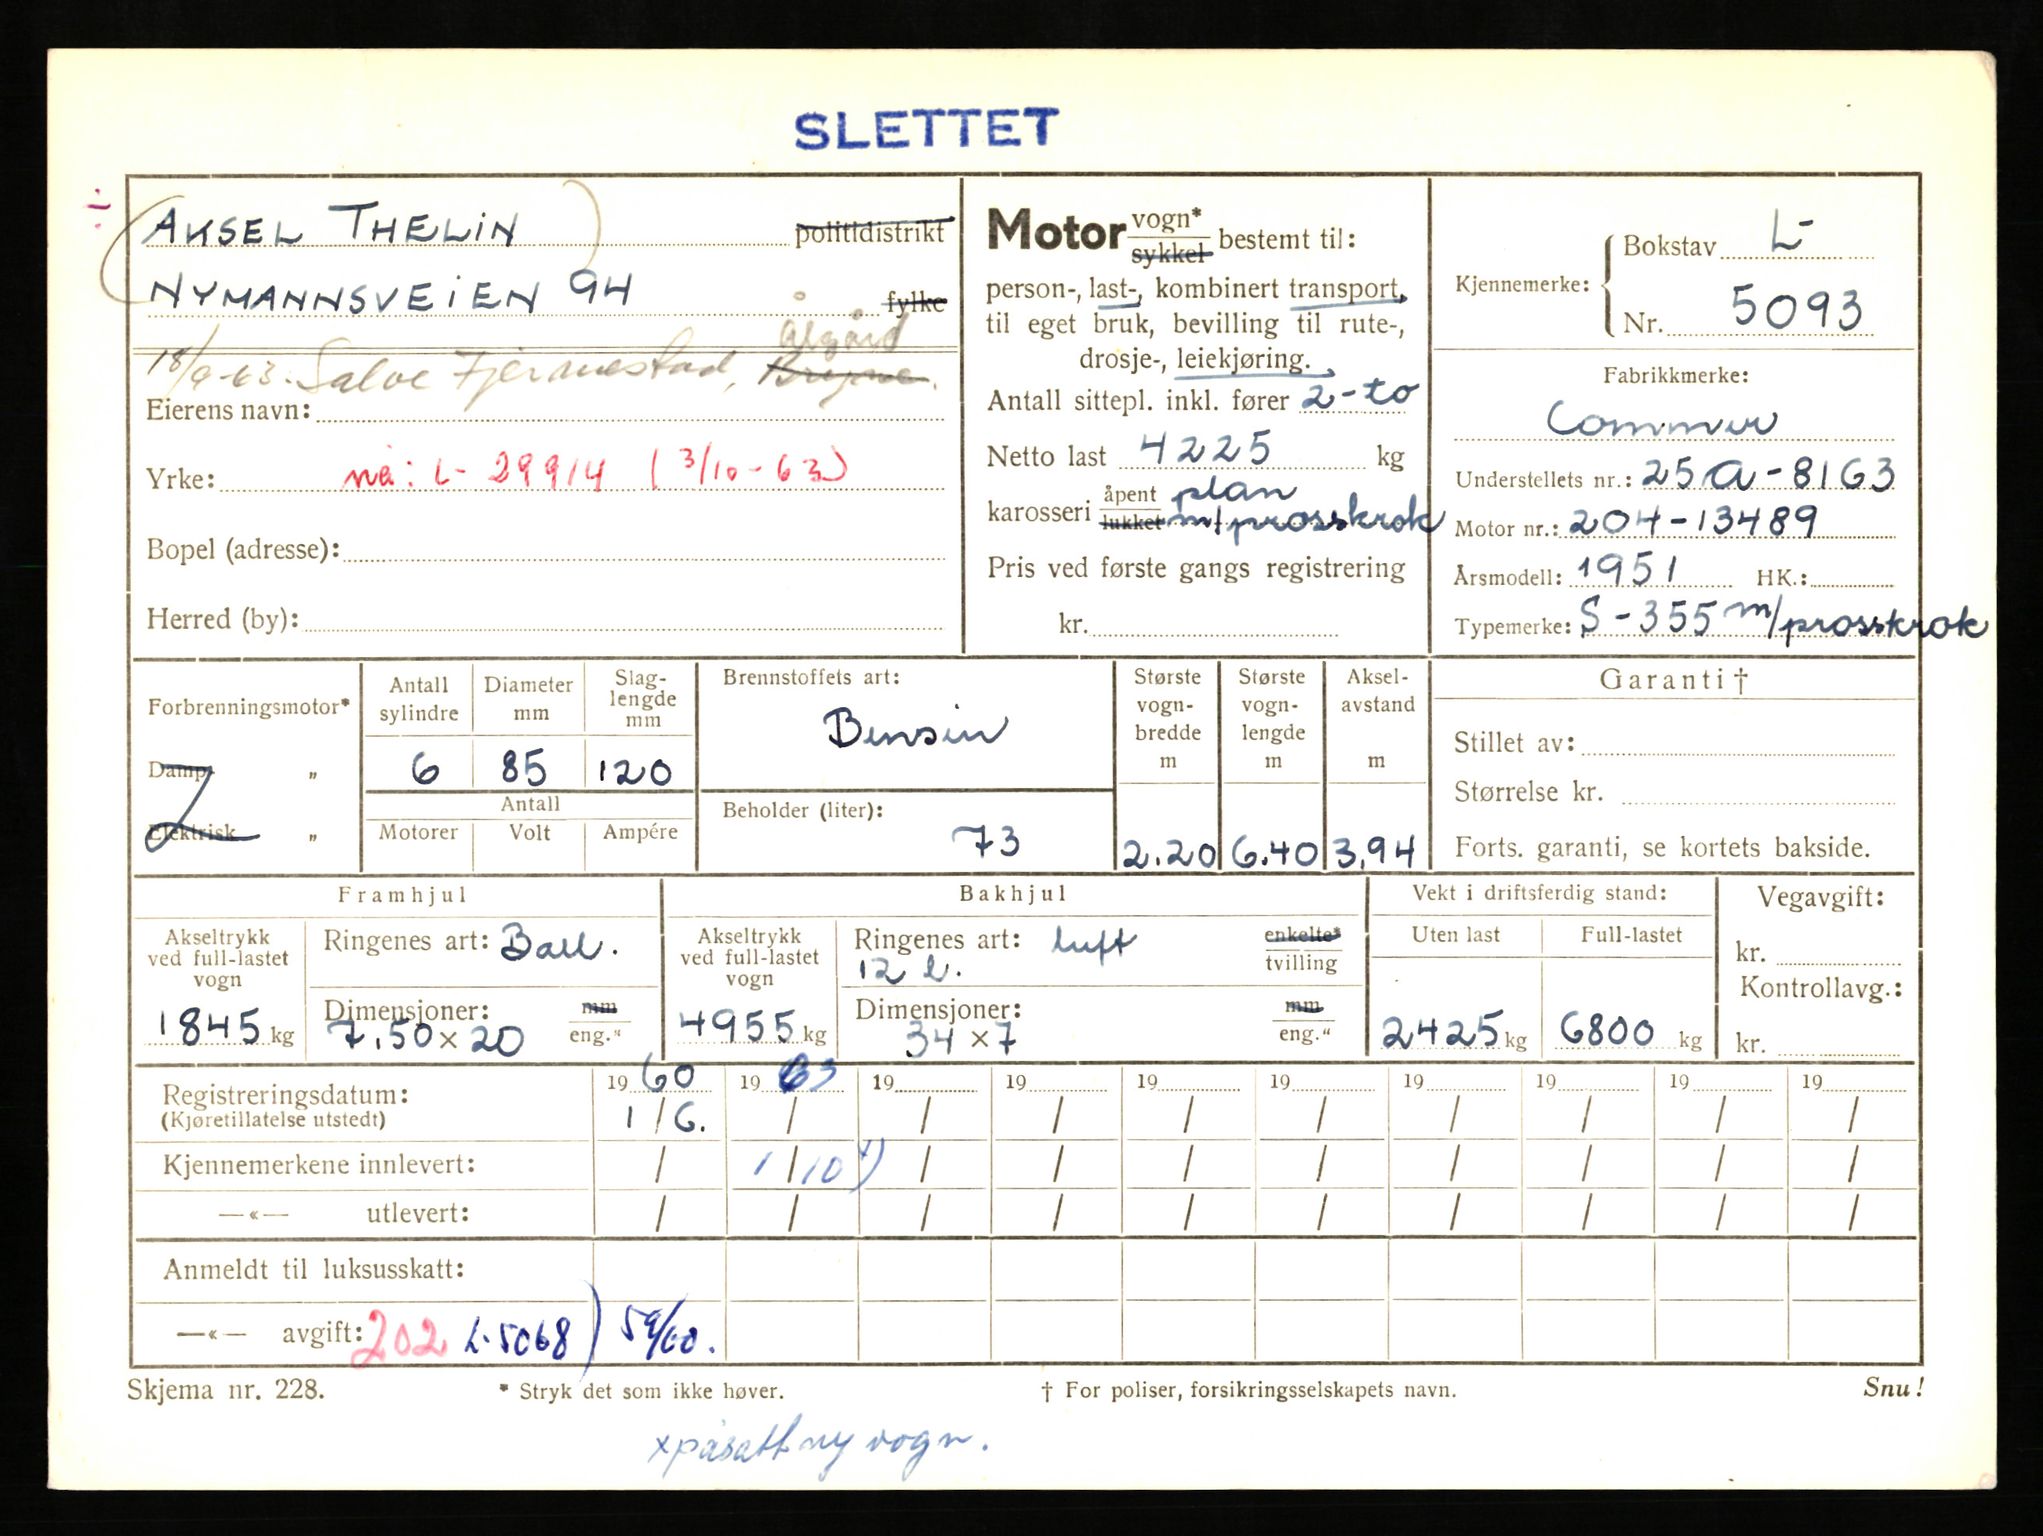 SLETTET
AKSEL THELIN politidistrikt
NYMANNSVEIEN 94 fylke
Ålgård
18/9-63. Salve Fjermestad, Bryne.
Eierens navn:
Yrke: nå: L- 29914 (3/10-63)
Bopel (adresse):
Herred (by):
Motor vogn* sykkel bestemt til:
person-, last-, kombinert transport,
til eget bruk, bevilling til rute-,
drosje-, leiekjøring.
Antall sittepl. inkl. fører 2-to
Netto last 4225 kg
karosseri åpent lukket plan
m/prosskrok
Pris ved første gangs registrering
kr.
Kjennemerke: Bokstav L-
Nr. 5093
Fabrikkmerke:
Commer
Understellets nr.: 25A-8163
Motor nr.: 204-13489
Årsmodell: 1951 HK.:
Typemerke: S-355 m/prosskrok
Forbrenningsmotor*
Damp „
Elektrisk „
Antall sylindre
Diameter mm
Slag-lengde mm
6 85 120
Antall
Motorer Volt Ampére
Brennstoffets art:
Bensin
Beholder (liter):
73
Største vogn-bredde m
2.20
Største vogn-lengde m
6.40
Aksel-avstand m
3,94
Garanti †
Stillet av:
Størrelse kr.
Forts. garanti, se kortets bakside.
Framhjul
Akseltrykk
ved full-lastet
vogn
1845 kg
Ringenes art: Ball.
Dimensjoner: mm
7.50 x 20 eng."
Bakhjul
Akseltrykk
ved full-lastet
vogn
4955 kg
Ringenes art: luft enkelte*
12 l. tvilling
Dimensjoner: mm
34 x 7 eng."
Vekt i driftsferdig stand:
Uten last Full-lastet
2425 kg 6800 kg
Vegavgift:
kr.
Kontrollavg.:
kr.
19 60 19 63 19 19 19 19 19 19 19 19
Registreringsdatum:
(Kjøretillatelse utstedt) 1/6. / / / / / / / / /
Kjennemerkene innlevert: / 1/10 x) / / / / / / / /
—«— utlevert: / / / / / / / / / /
Anmeldt til luksusskatt:
—«— avgift: 202 L-5068) 59/60.
Skjema nr. 228. * Stryk det som ikke høver. † For poliser, forsikringsselskapets navn. Snu!
x påsatt ny vogn.